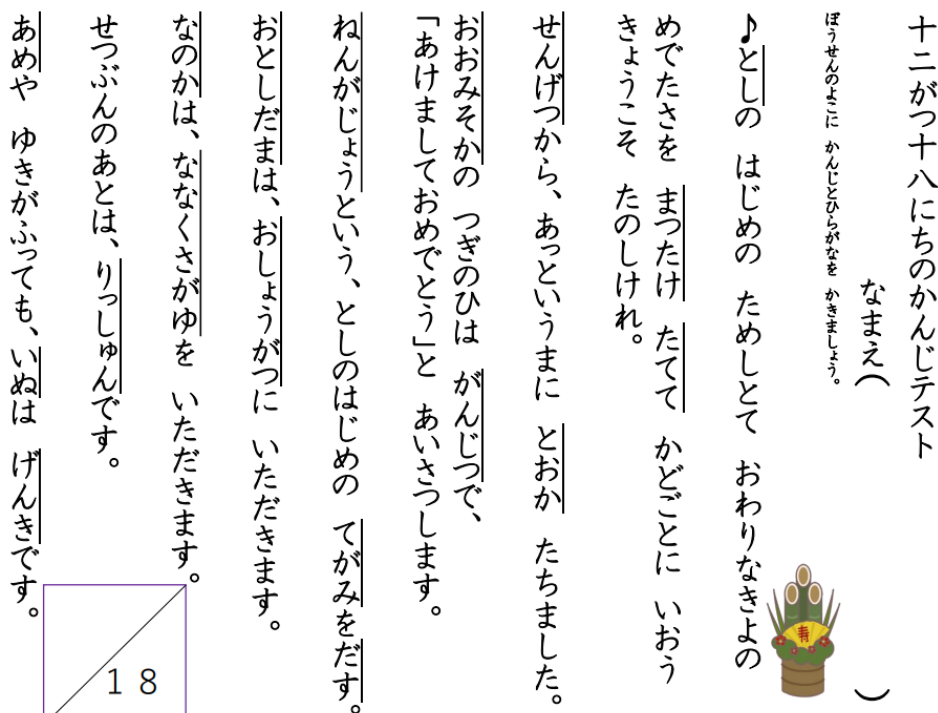 十二がつ十八にちのかんじテスト
なまえ（　　　）
ぼうせんのよこに かんじとひらがなを かきましょう。
♪としの はじめの ためしとて おわりなきよの
めでたさを まつたけ たてて かどごとに いおう
きょうこそ たのしけれ。
せんげつから、あっというまに とおか たちました。
おおみそかの つぎのひは がんじつで、
「あけましておめでとう」と あいさつします。
ねんがじょうという、としのはじめの てがみをだす。
おとしだまは、おしょうがつに いただきます。
なのかは、ななくさがゆを いただきます。
せつぶんのあとは、りっしゅんです。
あめや ゆきがふっても、いぬは げんきです。
18
寿